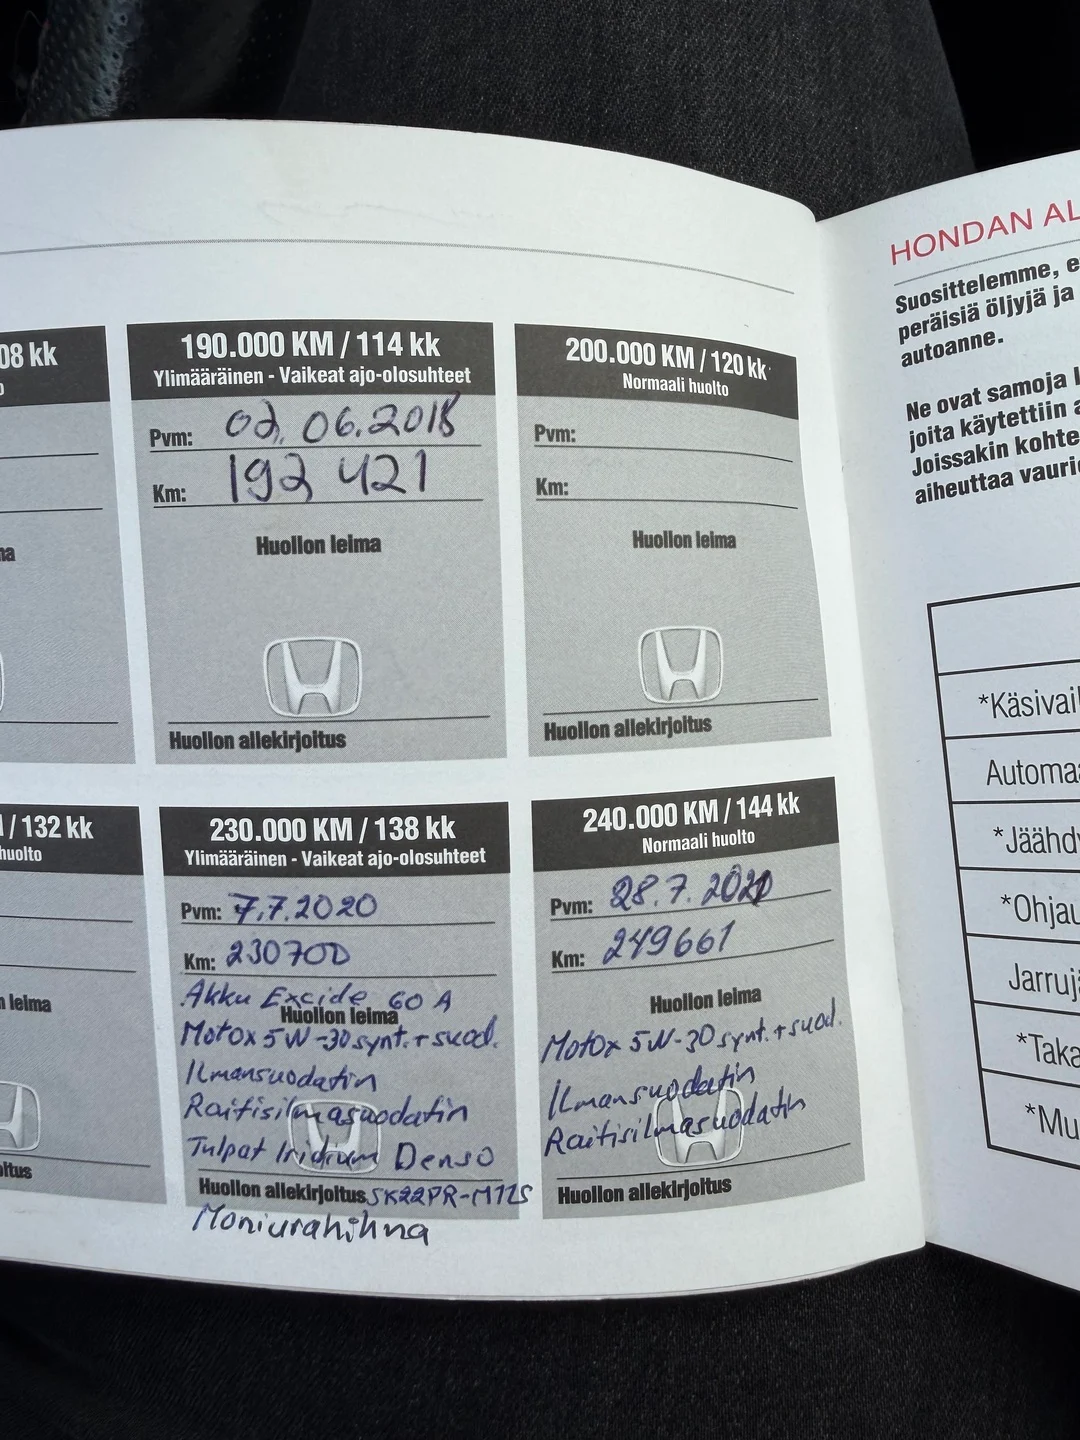 08 kk
190.000 KM / 114 kk
Ylimääräinen - Vaikeat ajo-olosuhteet
Pvm: 02.06.2018
Km: 192 421
Huollon leima
Huollon allekirjoitus
200.000 KM / 120 kk
Normaali huolto
Pvm:
Km:
Huollon leima
Huollon allekirjoitus
/ 132 kk
huolto
leima
230.000 KM / 138 kk
Ylimääräinen - Vaikeat ajo-olosuhteet
Pvm: 7.7.2020
Km: 230700
Akku Excide 60 A
Huollon leima
Motox 5W-30 synt. + suod.
Ilmansuodatin
Raitisilmasuodatin
Tulpat Iridium Denso
Huollon allekirjoitus SK22PR-M11S
Moniurahihna
240.000 KM / 144 kk
Normaali huolto
Pvm: 28.7.2021
Km: 249661
Huollon leima
Motox 5W-30 synt. + suod.
Ilmansuodatin
Raitisilmasuodatin
Huollon allekirjoitus
HONDAN AL
Suosittelemme, e
peräisiä öljyjä ja
autoanne.
Ne ovat samoja
joita käytettiin a
Joissakin kohte
aiheuttaa vaurio
*Käsivail
Automaa
*Jäähdy
*Ohjau
Jarrujä
*Taka
*Mu